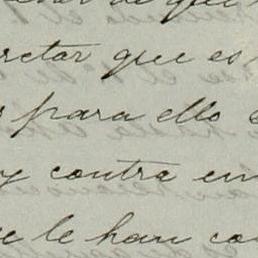 de que
rctar que es
para ello
y contra en
e le han co